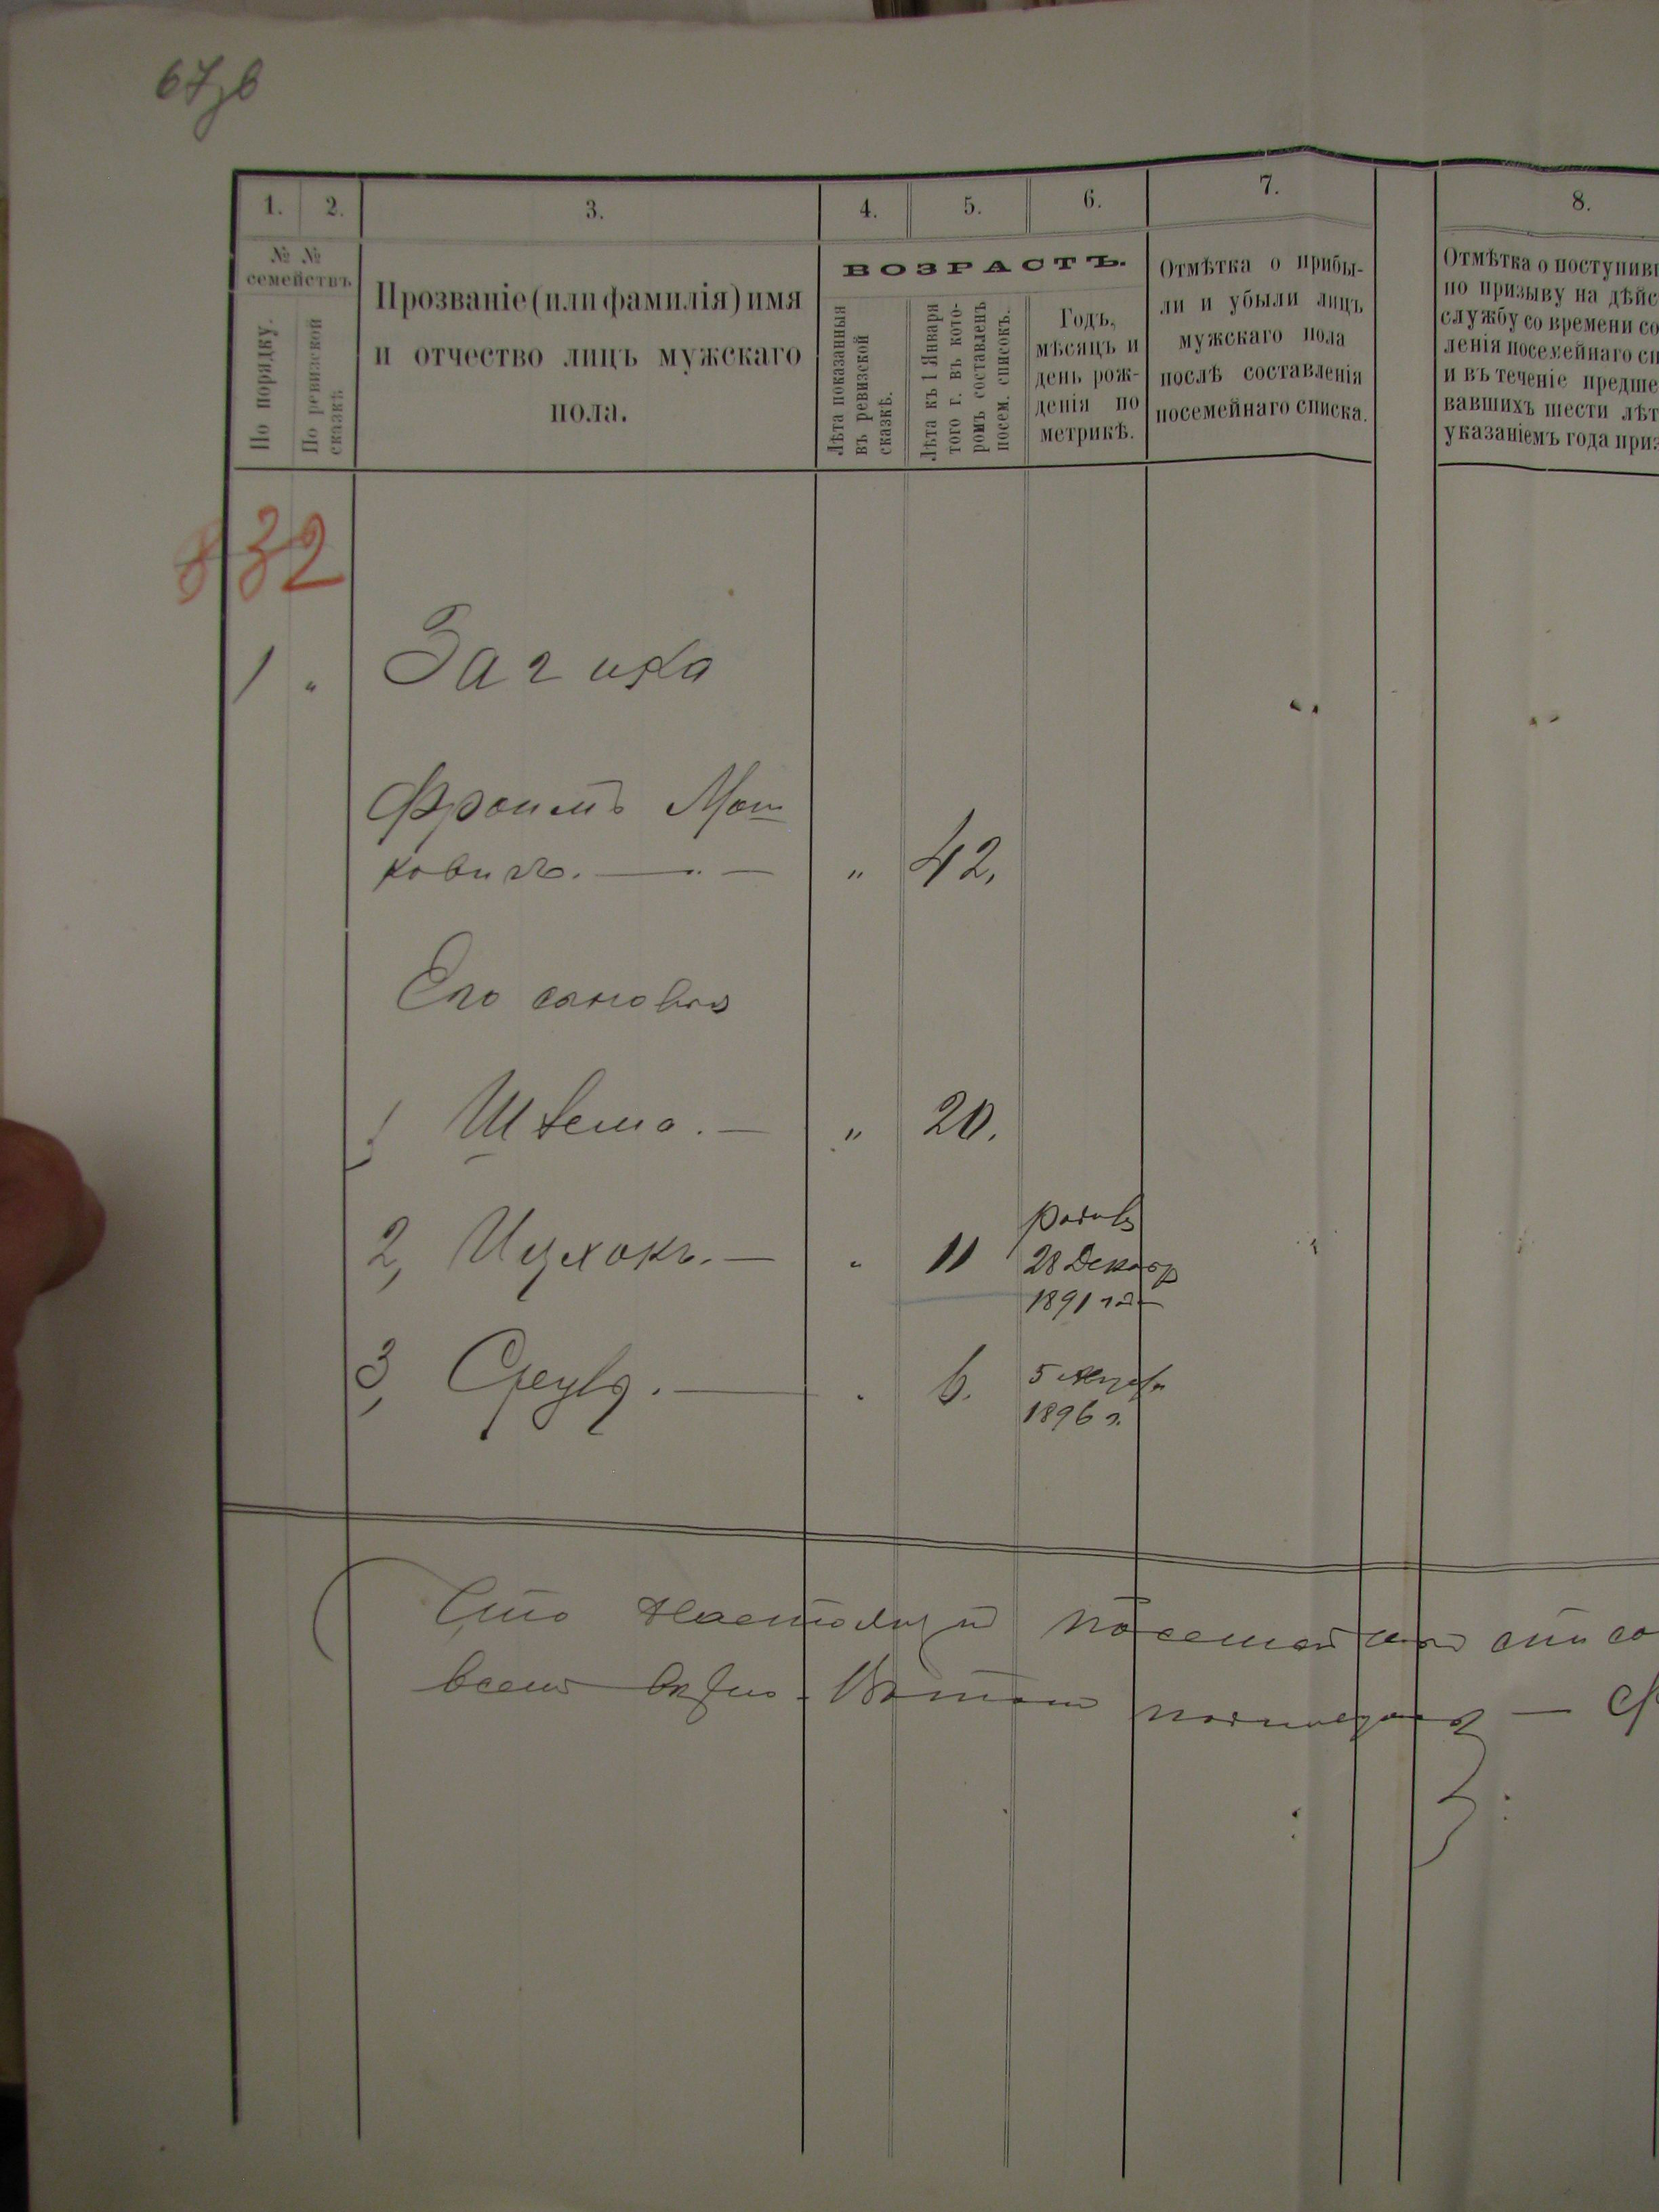 67 об
1. 2. 3. 4. 5. 6. 7. 8.
№ №
семействъ.
По порядку.
По ревизской
сказкѣ
Прозваніе (или фамилія) имя
и отчество лицъ мужскаго
пола.
ВОЗРАСТЪ.
Лѣта показанныя
въ ревизской
сказкѣ.
Лѣта къ 1 Января
того г. въ кото-
ромъ составленъ
посем. списокъ.
Годъ,
мѣсяцъ и
день рож-
денія по
метрикѣ.
Отмѣтка о прибы-
ли и убыли лицъ
мужскаго пола
послѣ составленія
посемейнаго списка.
Отмѣтка о поступивш
по призыву на дѣйс
службу со времени со
ленія посемейнаго сп
и въ теченіе предше
вавшихъ шести лѣт
указаніемъ года приз
832
1 „ Загика
Фроимъ Мош
ковичъ. — „ 42.
Его сыновья
1 Шлема. — „ 20.
2, Ицхокъ. — „ 11 родив
28 Декабр
1891 года
3, — „ 6. 5
1896 г.
Что настоящій посемейный списо
всем вѣрно